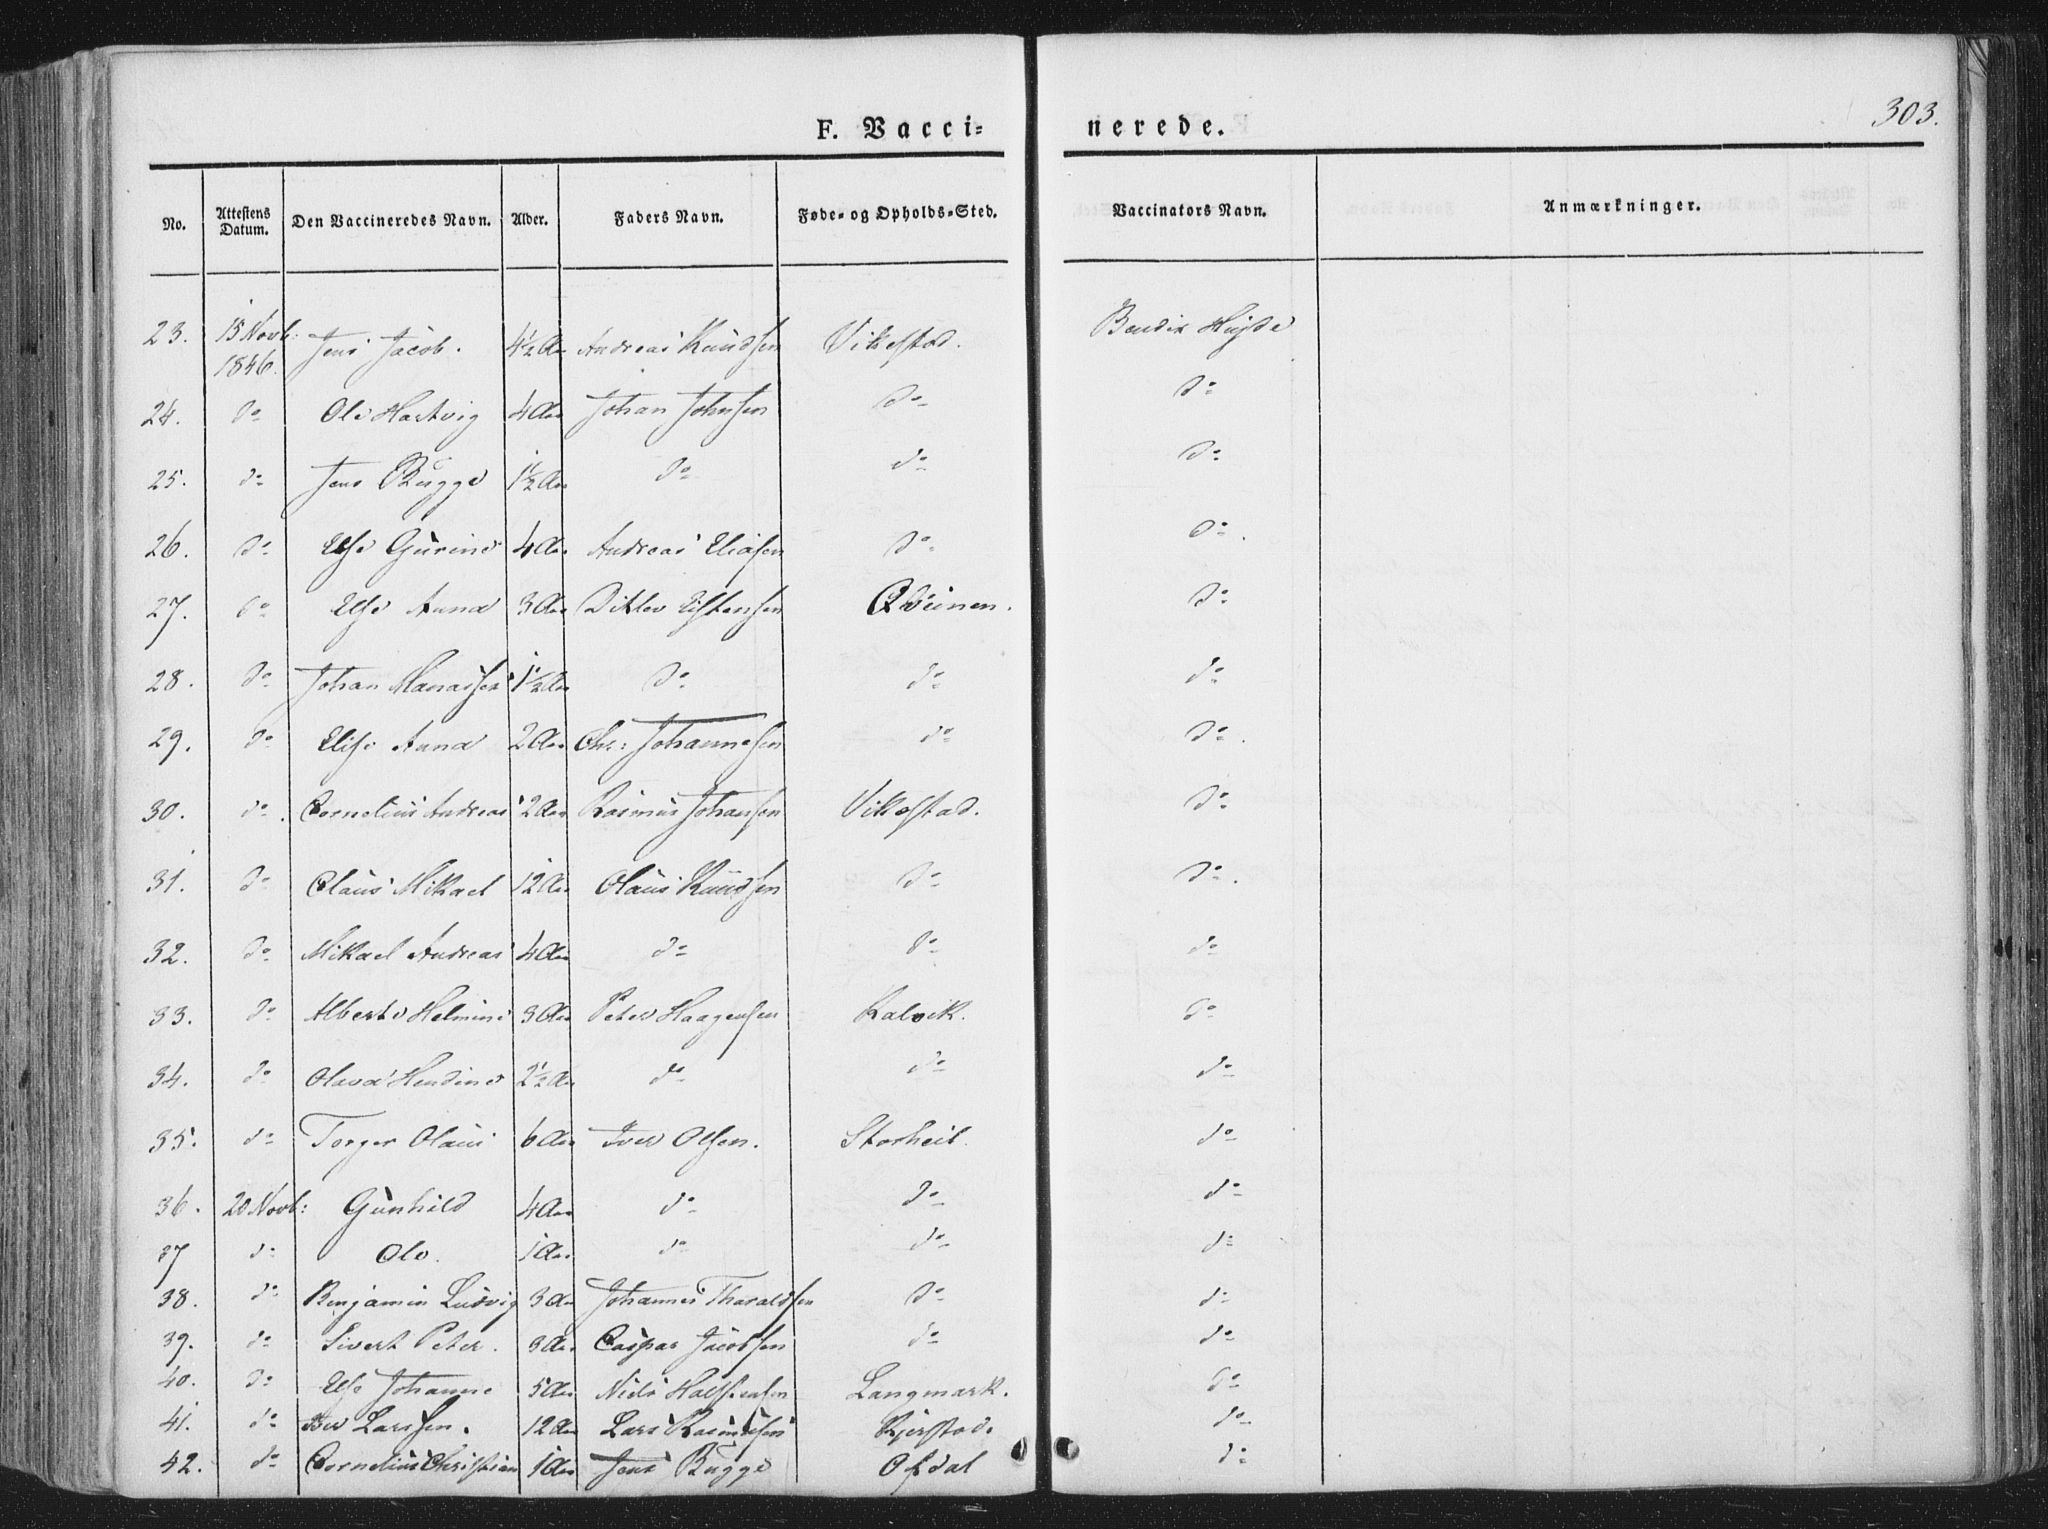 303.
F. Vacci= nerede.
No. Attestens Datum. Den Vaccineredes Navn. Alder. Faders Navn. Føde- og Opholds-Sted. Vaccinators Navn. Anmærkninger.
23. 15 Novb: 1846. Jens Jacob. 4½ Aar Andreas Knudsen Vikestad. Bendix
24. do Ole Hartvig 4 Aar Johan Johnsen do do
25. do Jens Bugge 1½ Aar do do do
26. do Else Gurine 4 Aar Andreas Eliasen do do
27. do Else Anna 3 Aar Ditlev do
28. do Johan Manasses 1½ Aar do do do
29. do Elise Anna 2 Aar Chr: Johannesen do do
30. do Cornelius Andreas 2 Aar Rasmus Johansen Vikestad. do
31. do Claus Mikael 12 Aar Olaus Knudsen do do
32. do Mikael Andreas 4 Aar do do do
33. do Alberte Helmine 3 Aar Peter Haagensen Kalvik. do
34. do Olava 2½ Aar do do do
35. do Torger Olaus 6 Aar Iver Olsen. Storheil. do
36. 20 Novb: Gunhild 4 Aar do do do
37 do Ole. 1 Aar do do do
38. do Benjamin Ludvig 3 Aar Johannes Tharaldsen do do
39. do Sivert Peter. 3 Aar Caspar Jacobsen do do
40. do Else Johanne 5 Aar Niels Halstensen Langmark. do
41. do Larssen. 12 Aar Lars Rasmussen Kjerstad. do
42. do Cornelius Christian 1 Aar Jens Bugge Ofdal do